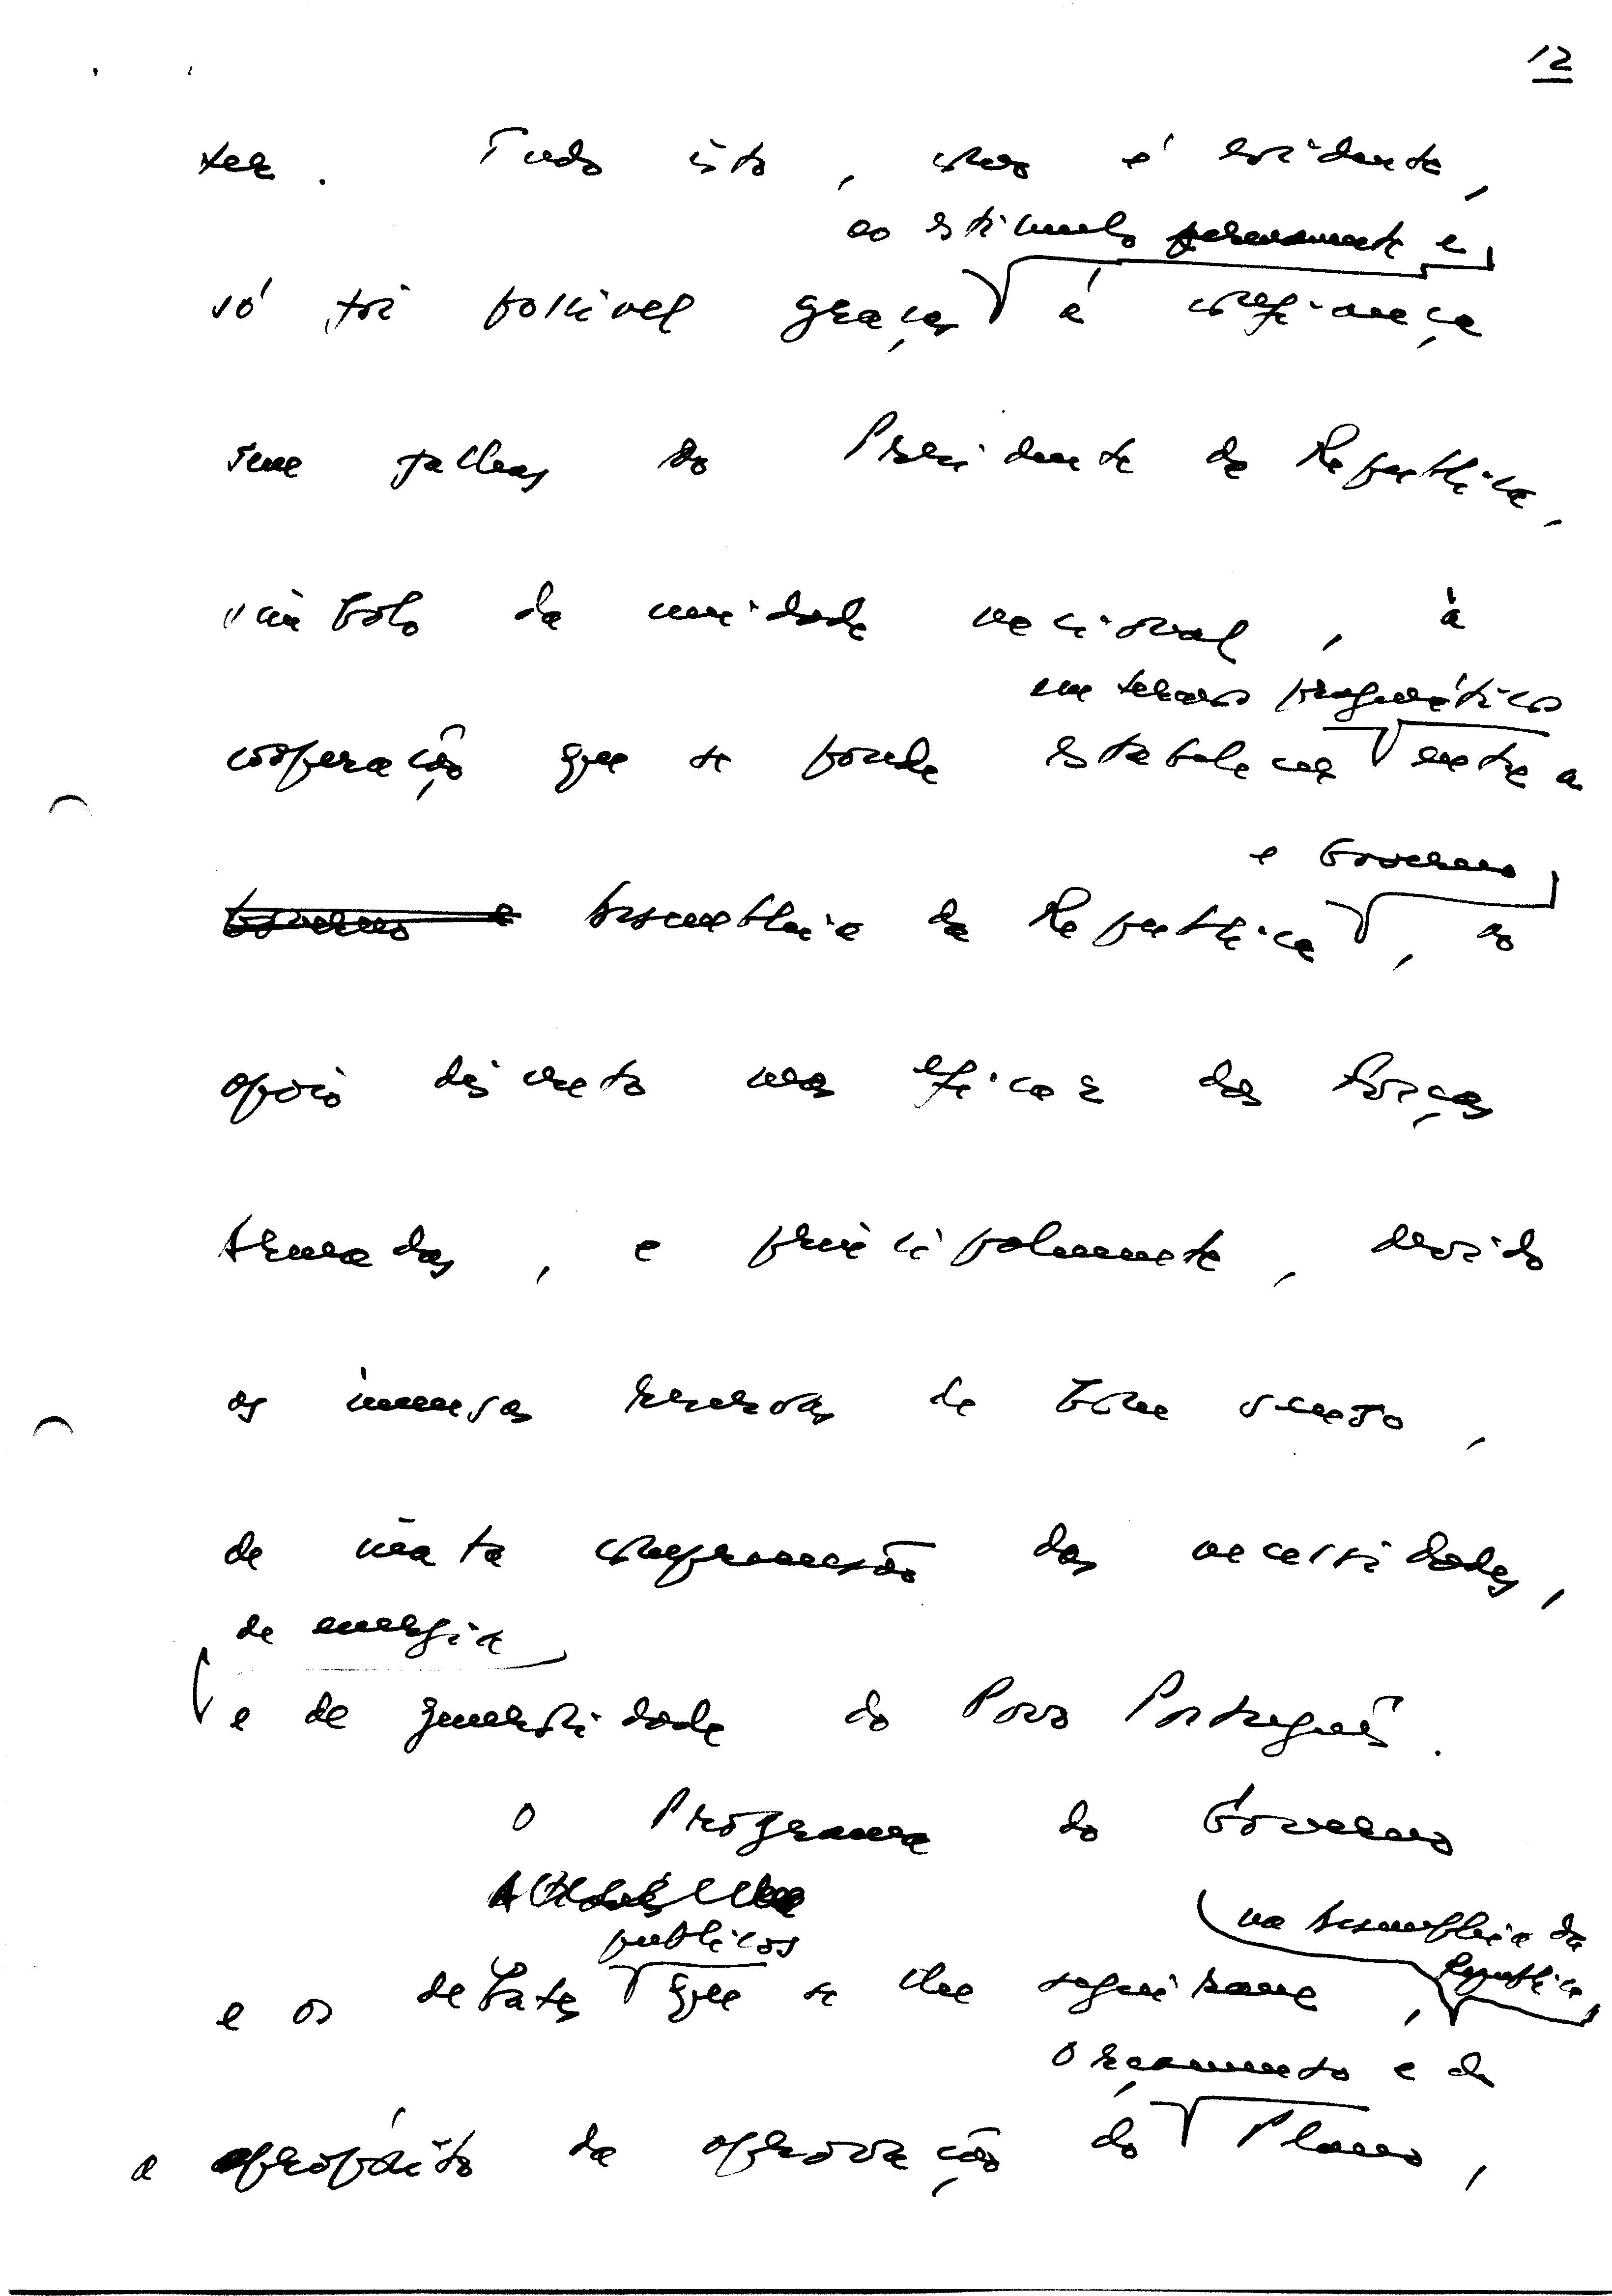 12
ter. Tudo isto, como é evidente,
ao estímulo permanente e
só foi possível graças à confiança
sem falhas do Presidente da República,
símbolo da unidade nacional, à
em termos pragmáticos
cooperação que se pôude estabelecer entre a
e Governo
Governo e Assembleia da República, ao
apoio discreto mas eficaz das Forças
Armadas, e principalmente, devido
às imensas reservas de bom senso,
de inata compreensão das necessidades,
de energia
e de generosidade do Povo Português.
O Programa do Governo
públicos
na Assembleia da
República,
e os debates que se lhe seguiram,
Orçamento e do
a propósito da aprovação do Plano,